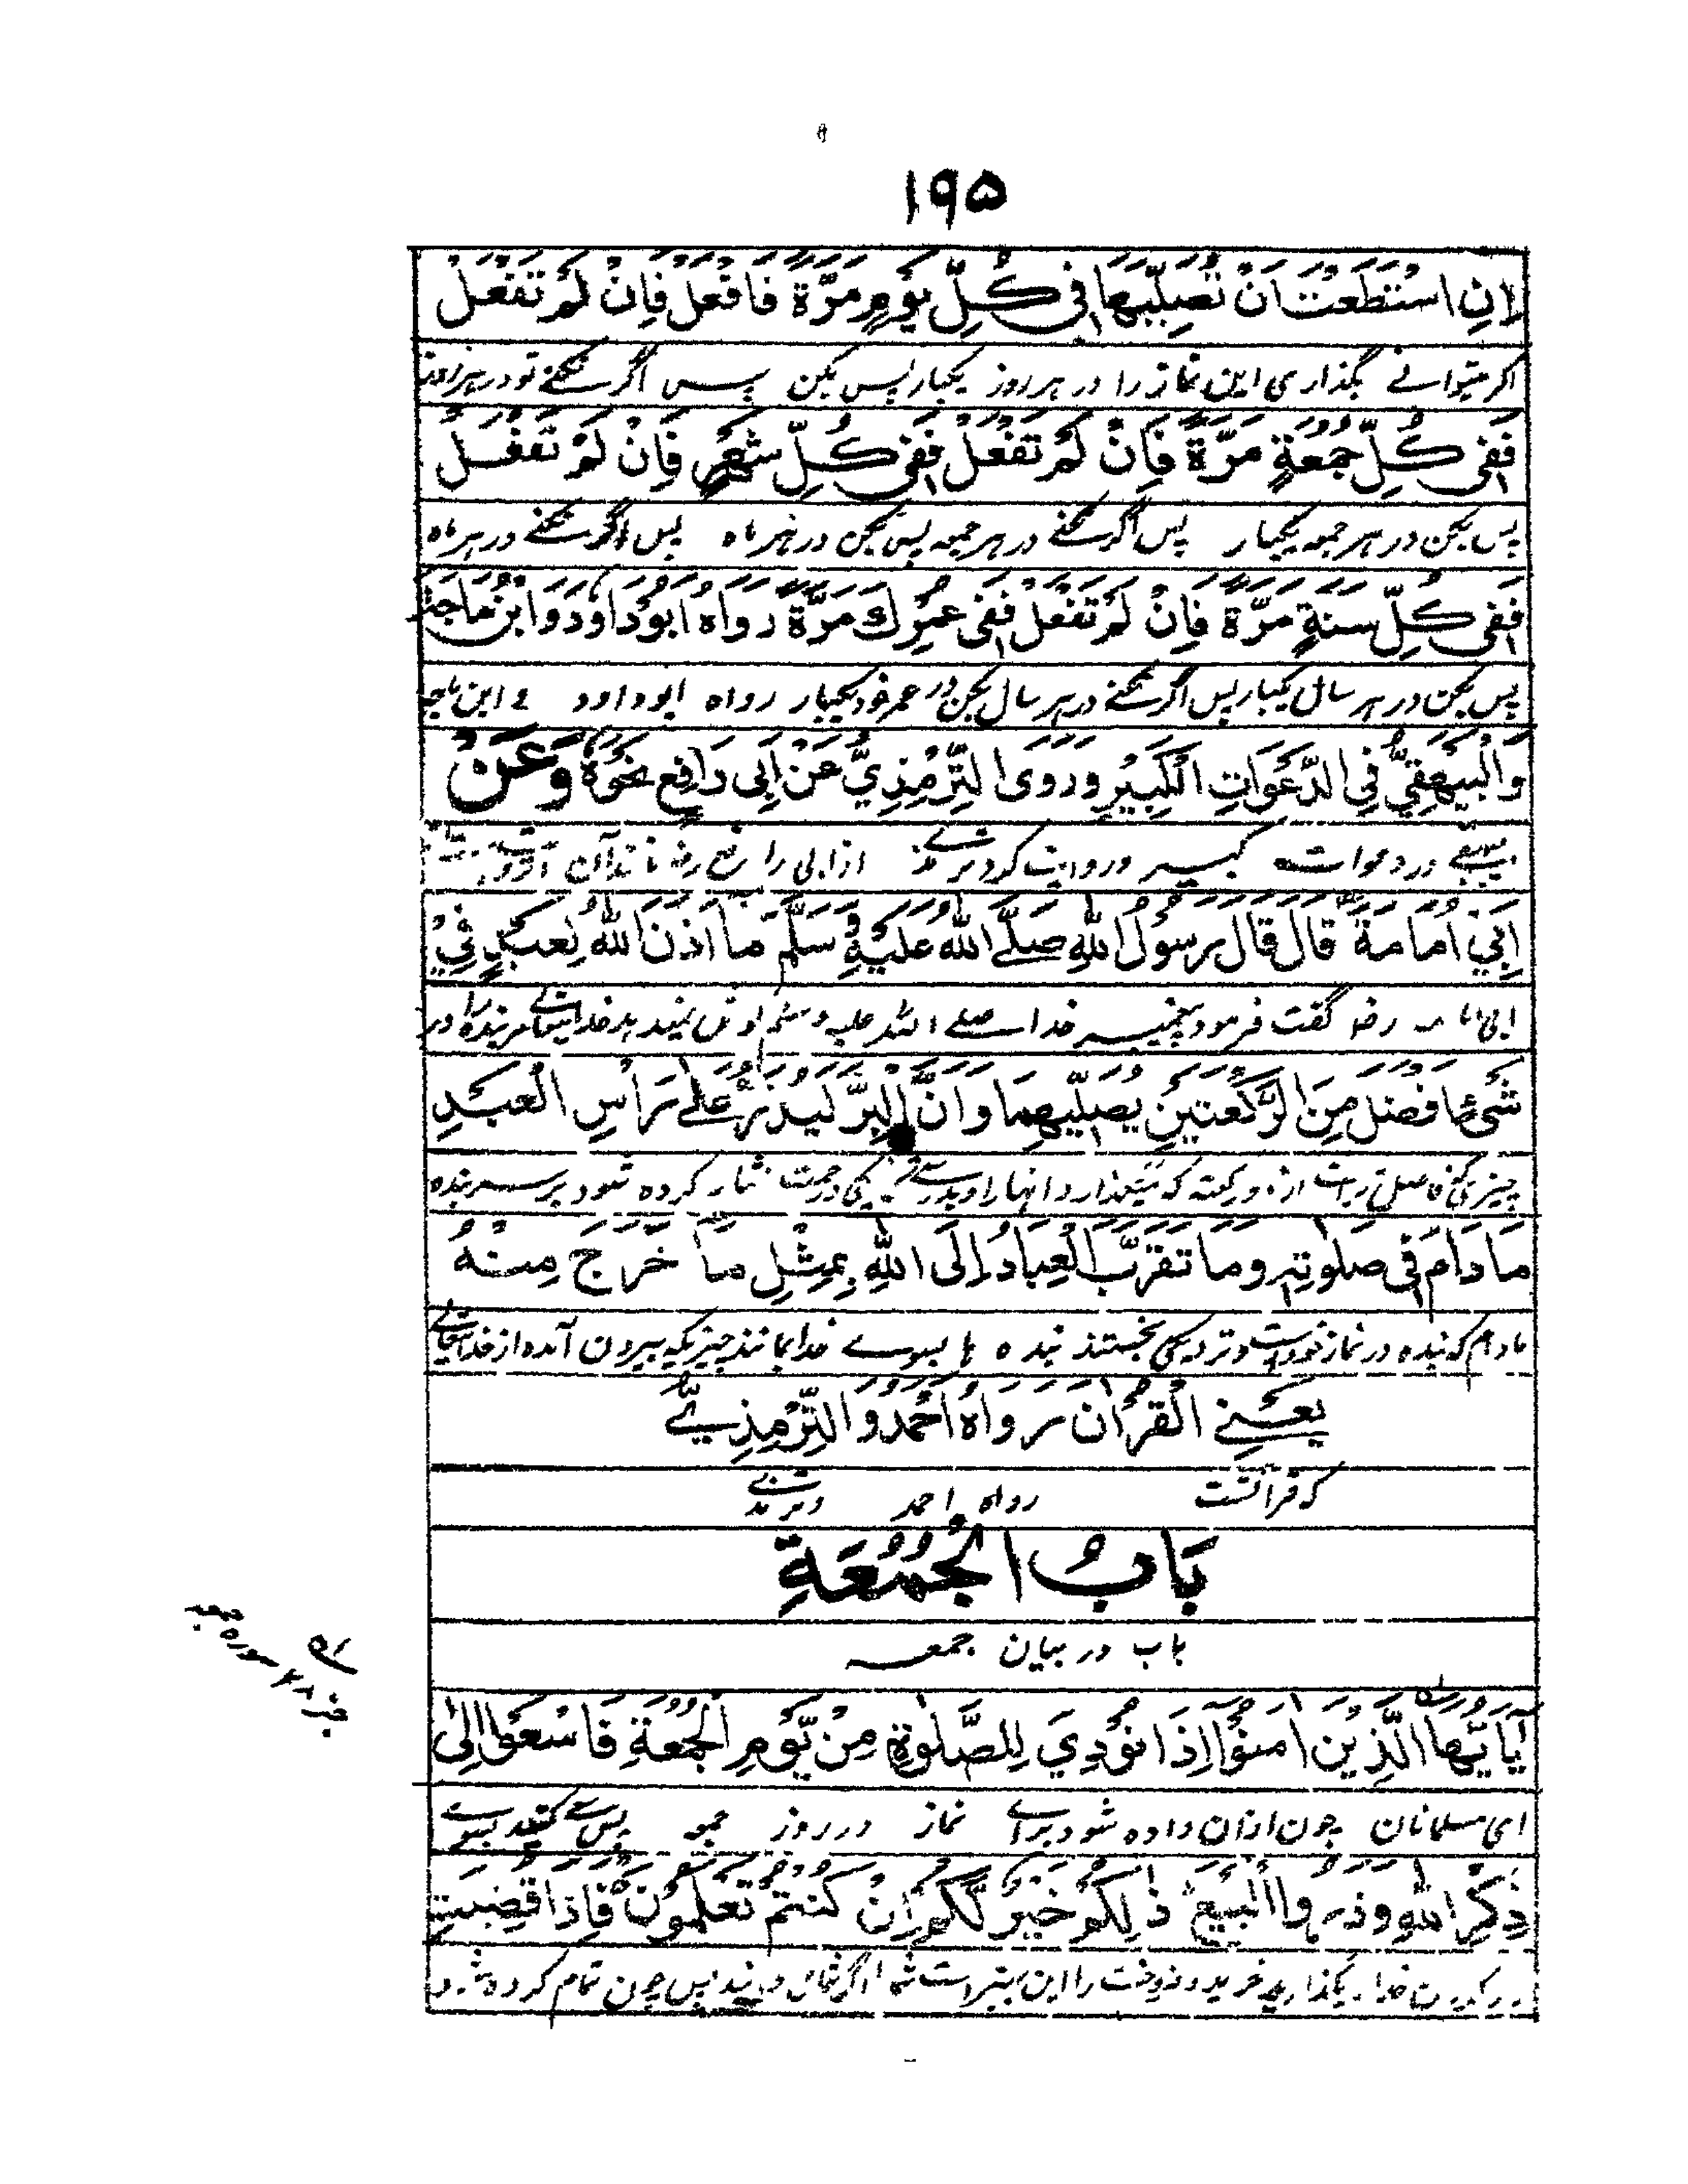 ۱۹۵
اِنِ اسْتَطَعْتَ اَنْ تُصَلِّيَهَا فِي كُلِّ يَوْمٍ مَرَّةً فَافْعَلْ فَاِنْ لَمْ تَفْعَلْ
اگر میتوانے بگذاری این نماز را در هر روز یکبار پس بکن پس اگر نکنے تو در هر روز
فَفِي كُلِّ جُمُعَةٍ مَرَّةً فَاِنْ لَمْ تَفْعَلْ فَفِي كُلِّ شَهْرٍ فَاِنْ لَمْ تَفْعَلْ
پس بکن در هر جمعه یکبار پس اگر نکنے در هر جمعه پس بکن در هر ماه پس اگر نکنے در هر ماه
فَفِي كُلِّ سَنَةٍ مَرَّةً فَاِنْ لَمْ تَفْعَلْ فَفِي عُمُرِكَ مَرَّةً رَوَاهُ اَبُوْدَاوٗدَ وَابْنُ مَاجَةَ
پس بکن در هر سال یکبار پس اگر نکنے در هر سال بکن در عمر خود یکبار رواه ابو داود و ابن ماجه
وَالْبَيْهَقِيُّ فِي الدَّعَوَاتِ الْكَبِيْرِ وَرَوَى التِّرْمِذِيُّ عَنْ اَبِي رَافِعٍ نَحْوَهُ وَعَنْ
بیهقے در دعوات کبیر و روایت کرد ترمذے از ابی رافع رض مانند آن
اَبِيْ اُمَامَةَ قَالَ قَالَ رَسُوْلُ اللّٰهِ صَلَّے اللّٰهُ عَلَيْهِ وَسَلَّمَ مَا اَذِنَ اللّٰهُ لِعَبْدٍ فِيْ
ابی امامه رض گفت فرمود پیغمبر خدا صلے الله علیه وسلم خدایتعالے مر بنده را در
شَيْءٍ اَفْضَلَ مِنَ الرَّكْعَتَيْنِ يُصَلِّيْهِمَا وَاِنَّ الْبِرَّ لَيُذَرُّ عَلٰے رَأْسِ الْعَبْدِ
چیزی که فاضل تر است از دو رکعته که میگذارد انها را و بدرستے نیکی و رحمت نثار کرده شود بر سر بنده
مَا دَامَ فِي صَلٰوتِهٖ وَمَا تَقَرَّبَ الْعِبَادُ اِلَى اللّٰهِ بِمِثْلِ مَا خَرَجَ مِنْهُ
مادام که بنده در نماز خود است و نزدیکی نجستند بنده ها بسوے خدا بمانند چیزیکه بیرون آمده از خدایتعالے
يَعْنِے الْقُرْاٰنَ رَوَاهُ اَحْمَدُ وَالتِّرْمِذِيُّ
که قرانست رواه احمد وترمذے
بَابُ الْجُمُعَةِ
باب در بیان جمعه
يٰاَيُّهَا الَّذِيْنَ اٰمَنُوْا اِذَا نُوْدِيَ لِلصَّلٰوةِ مِنْ يَّوْمِ الْجُمُعَةِ فَاسْعَوْا اِلٰى
ای مسلمانان چون اذان داده شود براے نماز در روز جمعه پس سعے کنید بسوے
ذِكْرِ اللّٰهِ وَذَرُوا الْبَيْعَ ذٰلِكُمْ خَيْرٌ لَّكُمْ اِنْ كُنْتُمْ تَعْلَمُوْنَ فَاِذَا قُضِيَتِ
خدا و بگذارید خرید و فروخت را این بهتر است شما را اگر شما میدانید پس چون تمام کرده شود
جز ۲۸ سوره جمعه